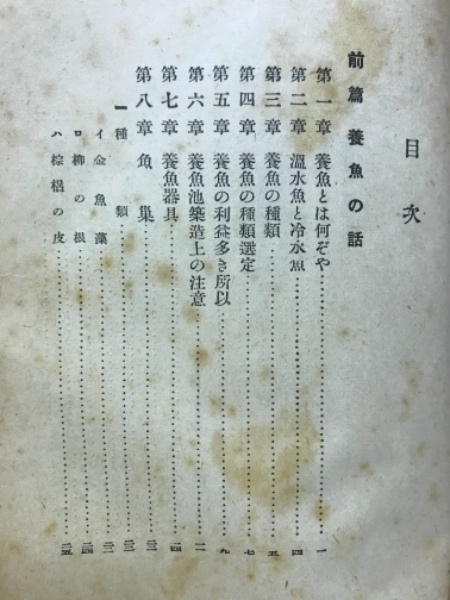 目次
前篇 養魚の話
第一章 養魚とは何ぞや……一
第二章 溫水魚と冷水魚……四
第三章 養魚の種類……五
第四章 養魚の種類選定……七
第五章 養魚の利益多き所以……九
第六章 養魚池築造上の注意……一一
第七章 養魚器具……一四
第八章 魚巢……
一 種類……
イ 金魚藻……
ロ 柳の根……二四
ハ 棕梠の皮……二五